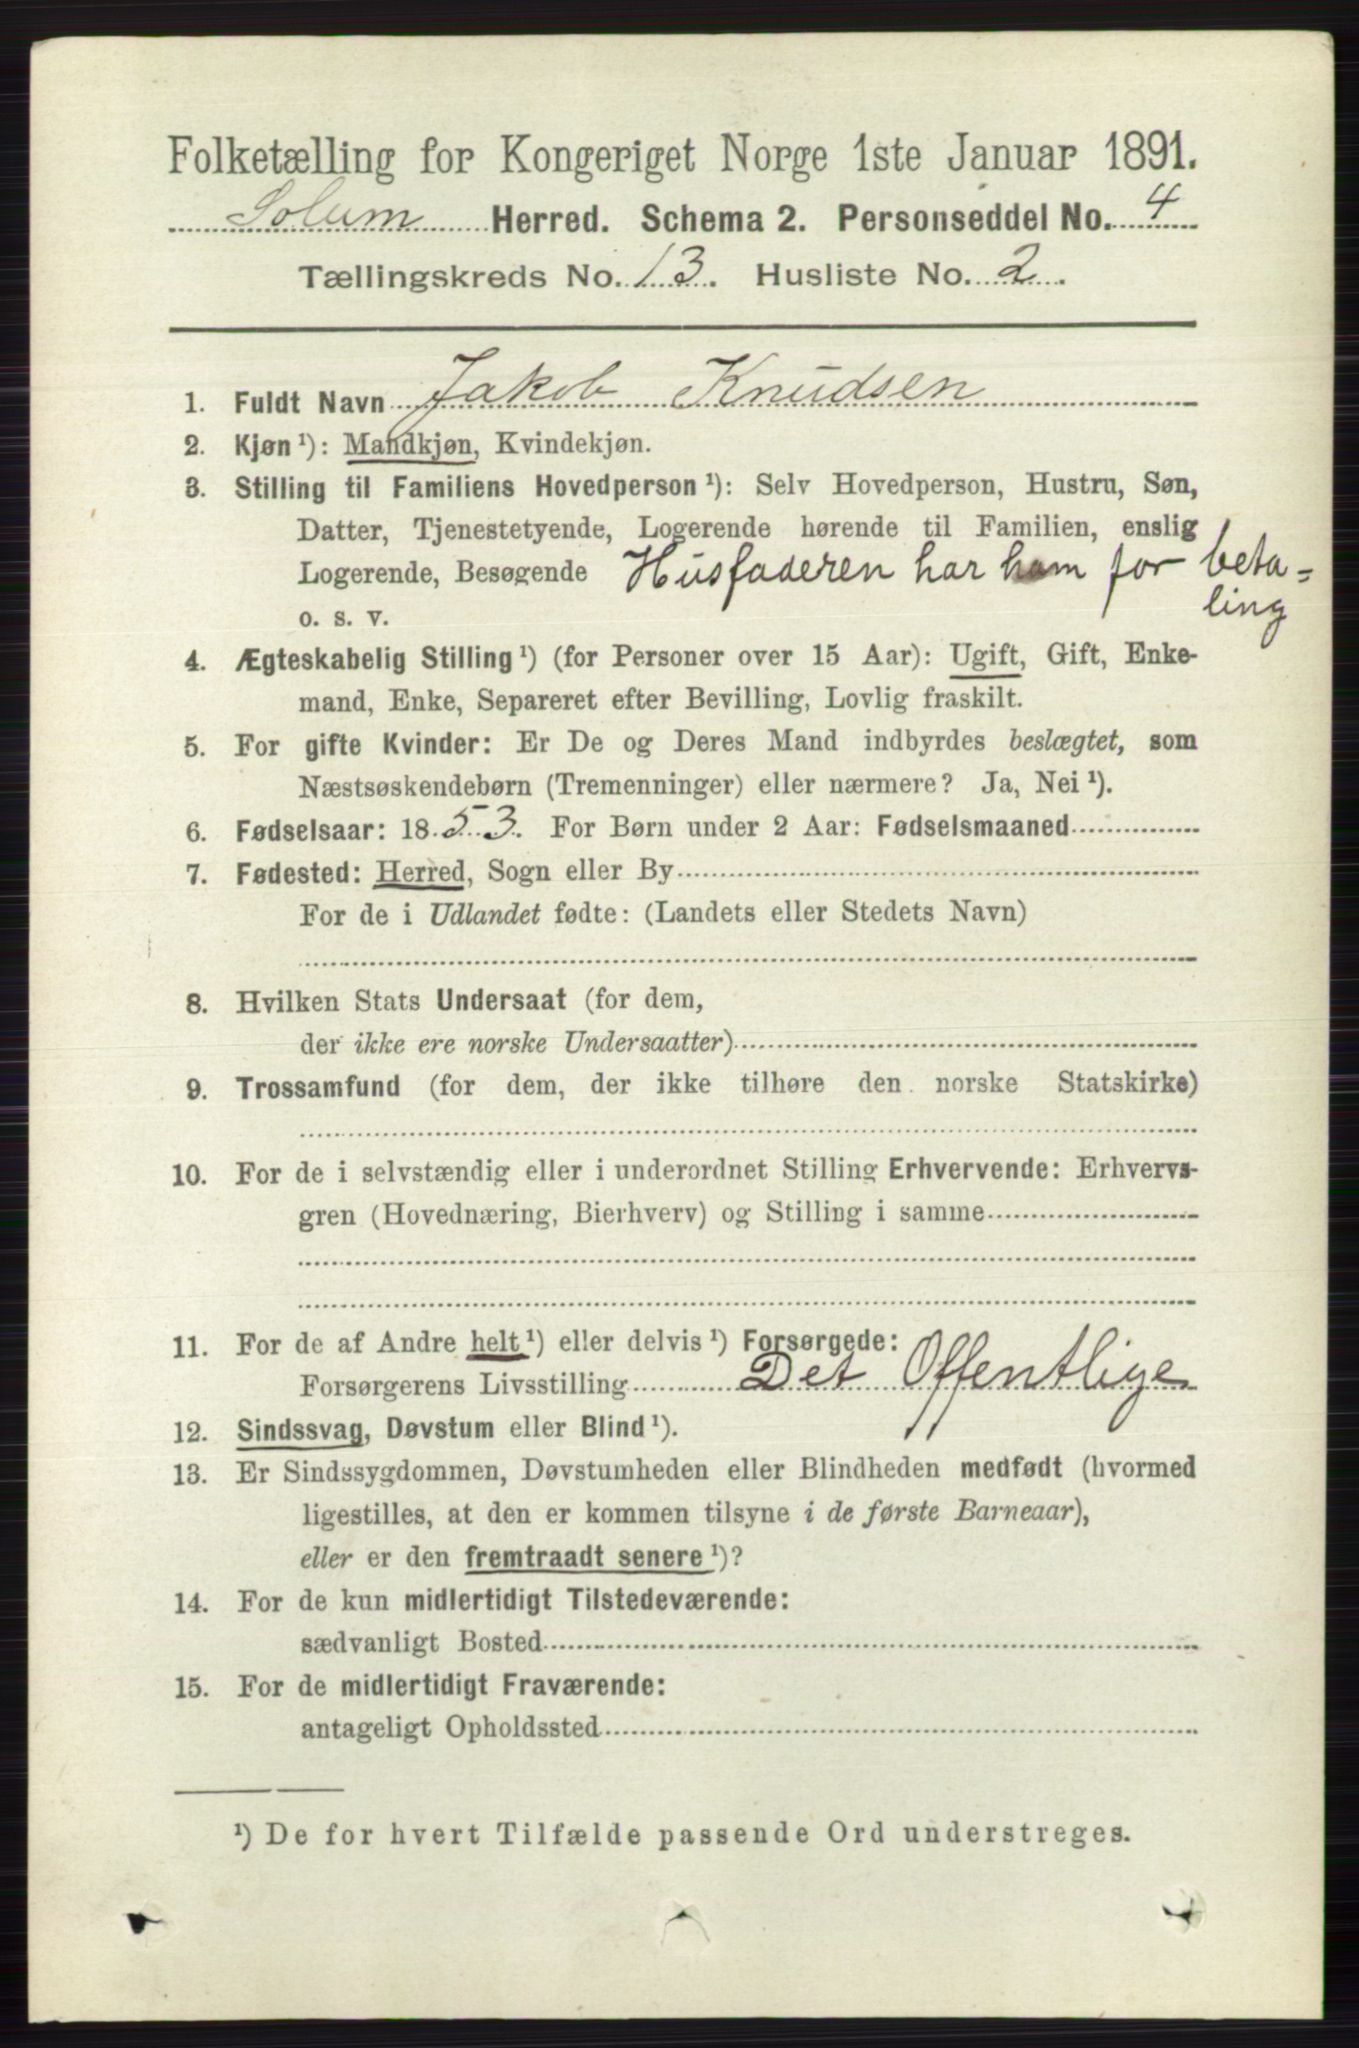 Folketælling for Kongeriget Norge 1ste Januar 1891.
Solum Herred. Schema 2. Personseddel No. 4
Tællingskreds No. 13. Husliste No. 2.
1. Fuldt Navn Jakob Knudsen
2. Kjøn ¹): Mandkjøn, Kvindekjøn.
3. Stilling til Familiens Hovedperson ¹): Selv Hovedperson, Hustru, Søn,
Datter, Tjenestetyende, Logerende hørende til Familien, enslig
Logerende, Besøgende Husfaderen har ham for beta=
o. s. v. ling
4. Ægteskabelig Stilling ¹) (for Personer over 15 Aar): Ugift, Gift, Enke-
mand, Enke, Separeret efter Bevilling, Lovlig fraskilt.
5. For gifte Kvinder: Er De og Deres Mand indbyrdes beslægtet, som
Næstsøskendebørn (Tremenninger) eller nærmere? Ja, Nei ¹).
6. Fødselsaar: 1853. For Børn under 2 Aar: Fødselsmaaned
7. Fødested: Herred, Sogn eller By
For de i Udlandet fødte: (Landets eller Stedets Navn)
8. Hvilken Stats Undersaat (for dem,
der ikke ere norske Undersaatter)
9. Trossamfund (for dem, der ikke tilhøre den norske Statskirke)
10. For de i selvstændig eller i underordnet Stilling Erhvervende: Erhvervs-
gren (Hovednæring, Bierhverv) og Stilling i samme
11. For de af Andre helt ¹) eller delvis ¹) Forsørgede:
Forsørgerens Livsstilling Det Offentlige
12. Sindssvag, Døvstum eller Blind ¹).
13. Er Sindssygdommen, Døvstumheden eller Blindheden medfødt (hvormed
ligestilles, at den er kommen tilsyne i de første Barneaar),
eller er den fremtraadt senere ¹)?
14. For de kun midlertidigt Tilstedeværende:
sædvanligt Bosted
15. For de midlertidigt Fraværende:
antageligt Opholdssted
¹) De for hvert Tilfælde passende Ord understreges.